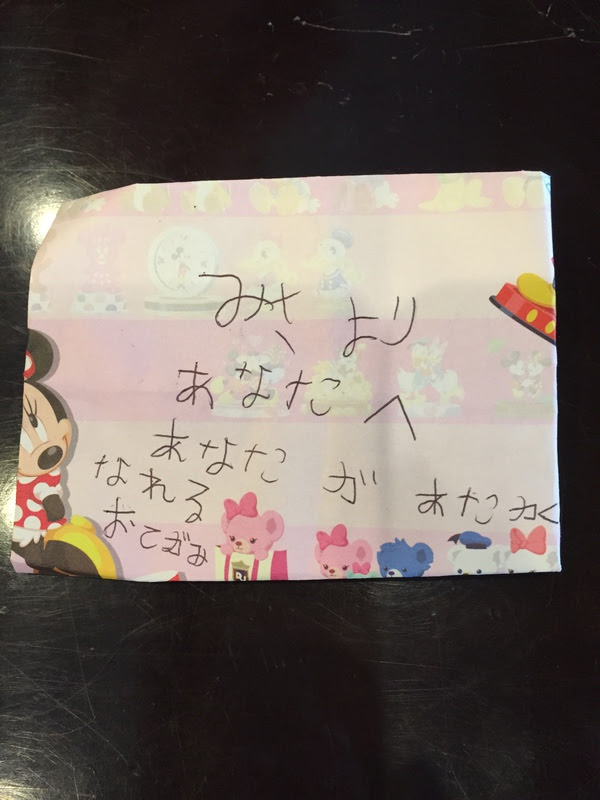 み、より
あなたへ
あなたが あたたかく
なれる
おてがみ